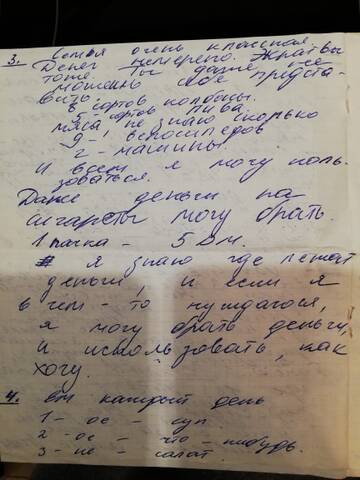 3. Семья очень классная.
Денег немерено. Жратвы
тоже. Ты даже не
можешь себе предста-
вить.
8 сортов колбасы.
5 - сортов пива.
мяса, не знаю сколько
9 -, велосипедов
2 - машины.
И всем я могу поль-
зоваться.
Даже деньги на
сигареты могу брать.
1 пачка - 5 Дм.
я знаю где лежат
деньги, и если я
в чем - то нуждаюся,
я могу брать деньги,
и использовать, как
хочу.
4. каждый день
1 - ое - суп
2 - ое - что - нибудь.
3 - ие - салат.